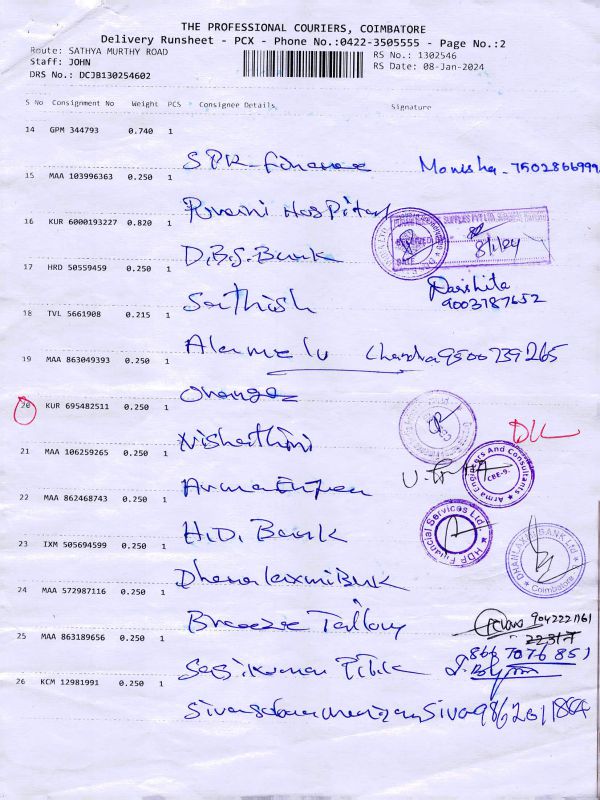 THE PROFESSIONAL COURIERS, COIMBATORE
Delivery Runsheet - PCX - Phone No.:0422-3505555 - Page No.:2
Route: SATHYA MURTHY ROAD RS No.: 1302546
Staff: JOHN RS Date: 08-Jan-2024
DRS No.: DCJB130254602
S No Consignment No Weight PCS Consignee Details Signature
14 GPM 344793 0.740 1
SPR finance Monisha - 7502866999
15 MAA 103996363 0.250 1
Hospital
16 KUR 6000193227 0.820 1
D.B.S. Bank 8/1/24
17 HRD 50559459 0.250 1
Sathish Darshita
9003787652
18 TVL 5661908 0.215 1
Alamelu Chandra 9500739265
19 MAA 863049393 0.250 1
Orange
20 KUR 695482511 0.250 1
Nishathini
21 MAA 106259265 0.250 1
Arma Engineers And Consultants
CBE-9.
Arma
22 MAA 862468743 0.250 1
H.D. Bank
HDP Financial Services Ltd
23 IXM 505694599 0.250 1
Dhanalaxmi Bank
DHANLAXMI BANK Ltd
Coimbatore
24 MAA 572987116 0.250 1
Breeze 9042221161
25 MAA 863189656 0.250 1
Sasikumar 8667076851
26 KCM 12981991 0.250 1
Siva 9862011864